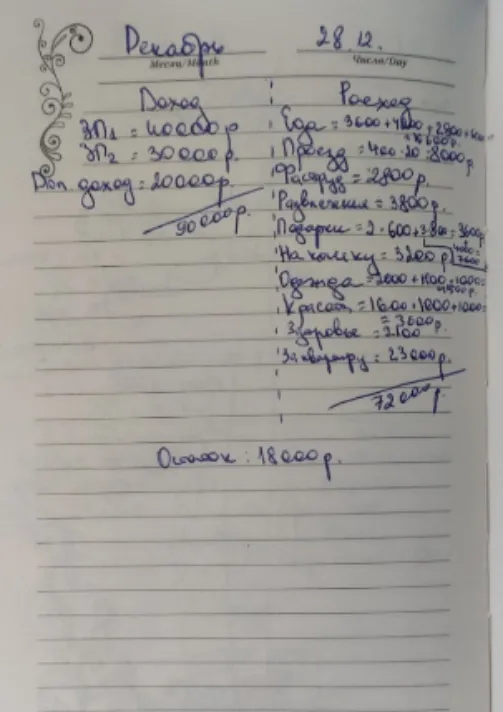 Декабрь 28.12.
Месяц/Month Число/Day
Доход
ЗП1 = 40000р
ЗП2 = 30000р.
Доп. доход = 20000р.
90000р.
Расход
Еда = 3600 + 4000 +
Проезд = 400 · 20 = 8000р
Фастфуд = 2800р.
Развлечения = 3800р.
Подарки = 2 · 600 +
На копилку = 3200р
Одежда = 2000 +
Красота = 1600 + 1000 + 1000 =
= 3600р.
Здоровье = 2100
За квартиру = 23000р.
72000р.
Остаток : 18000р.